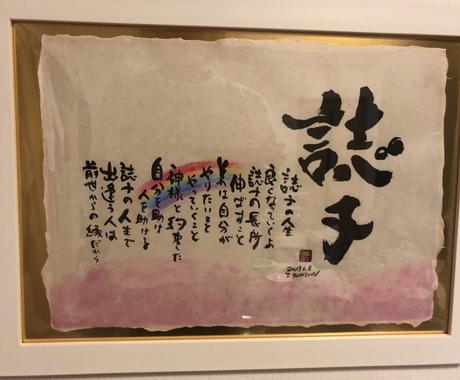 誌子
誌子の人生
良くなっていくよ
誌子の長所
伸ばすこと
それは自分が
やりたいこと
やっていくこと
神様と約束した
自分を助け
人を助けよ
誌子の人生で
出逢う人は
前世からの縁だから